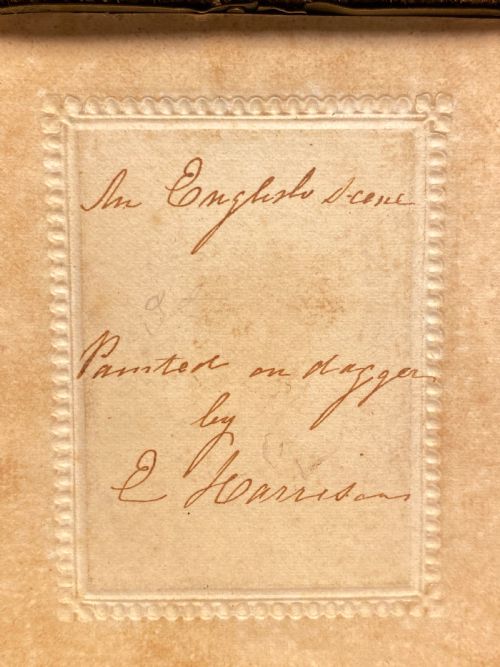 An English Scene
Painted on dagger
by
E Harrison